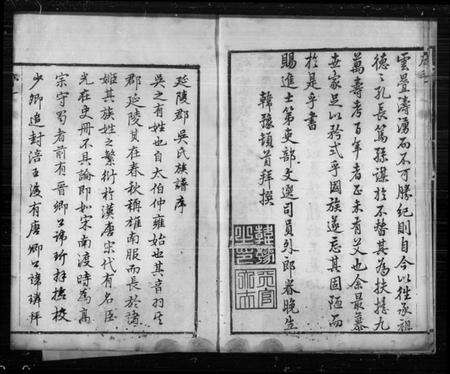 雲疊濤湧而不可勝紀則自今以往承祖
德之孔長篤孫謀於不替其為扶掖九
萬壽考百年者正未有艾也余最慕
世家足以矜式乎國族遂忘其固陋而
於是乎書
賜進士第吏部文選司員外郎眷晚生
韓孫頓首拜撰
延陵郡吳氏族譜序
吳之有姓也自太伯仲雍始也其言羽
郡延陵其在春秋稱雄南服而長於諸
姬其族姓之繁衍於漢唐宋代有名臣
光在史冊不具論即如宋南渡時為高
宗守蜀者前有晉卿公諱玠拜撫校
少卿追封涪王後有唐卿公諱璘拜